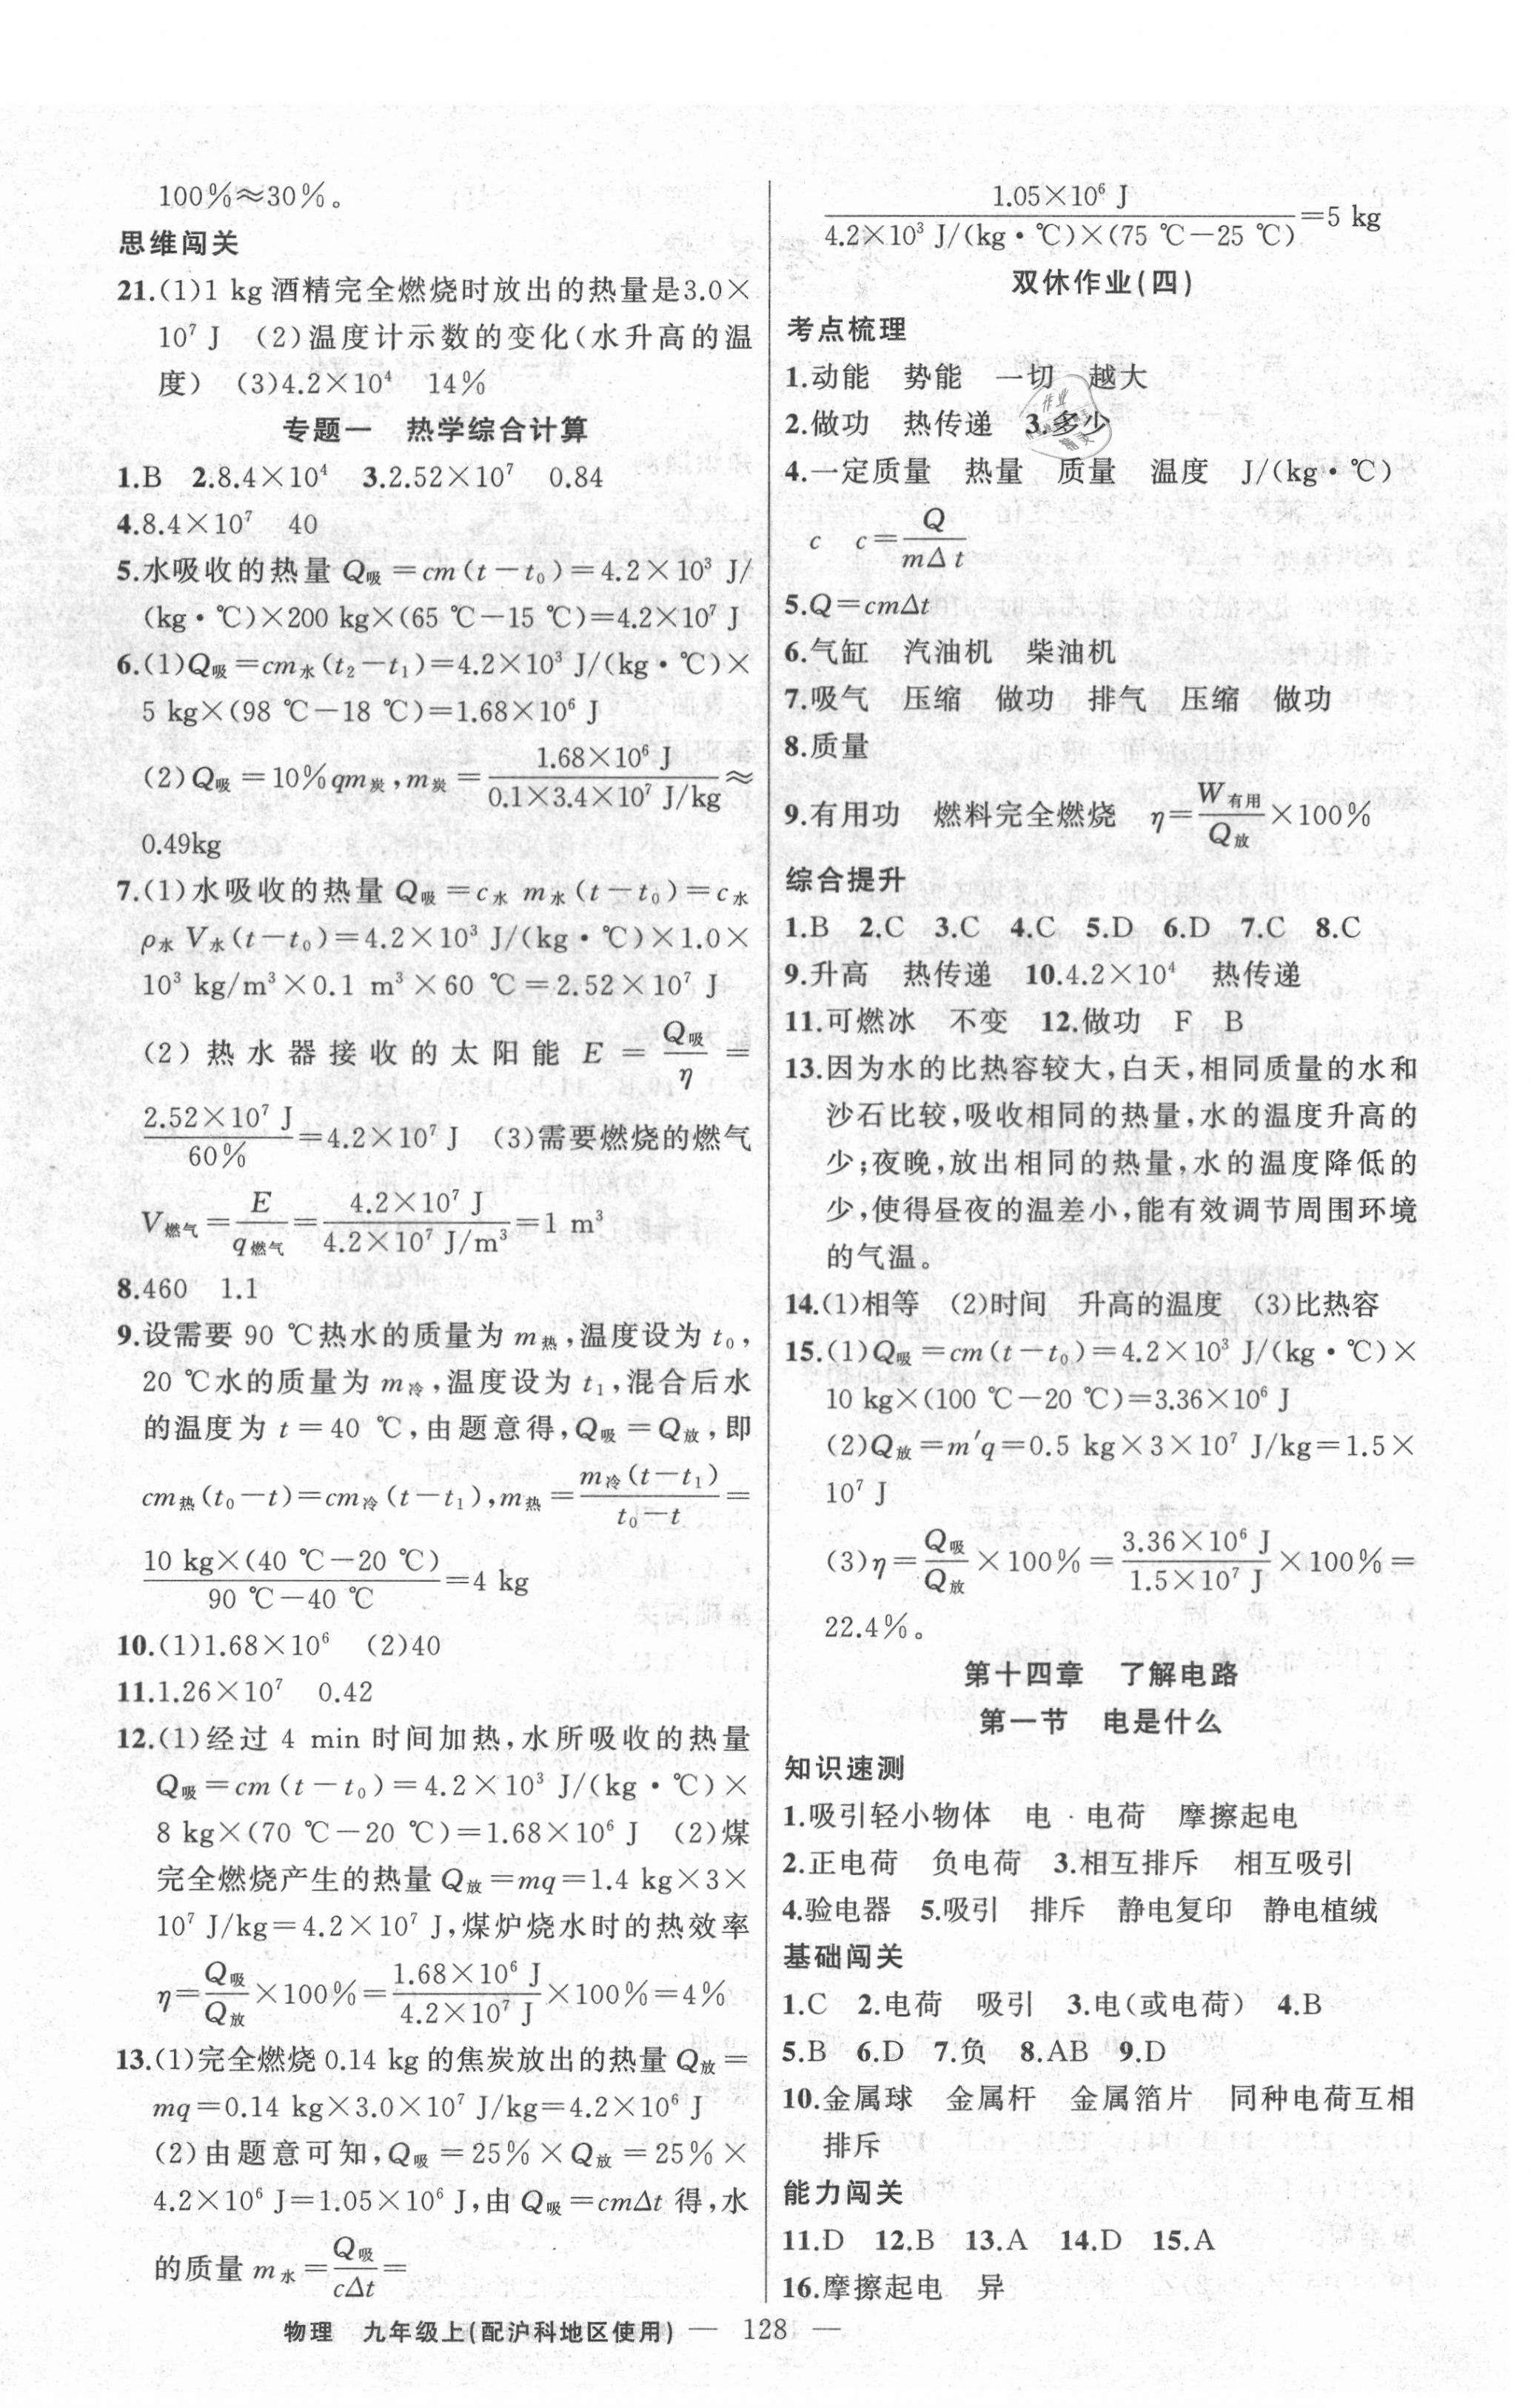 100%≈30%。
思维闯关
21.(1)1 kg 酒精完全燃烧时放出的热量是3.0×
10⁷ J (2)温度计示数的变化(水升高的温
度) (3)4.2×10⁴ 14%
专题一 热学综合计算
1.B 2.8.4×10⁴ 3.2.52×10⁷ 0.84
4.8.4×10⁷ 40
5.水吸收的热量 Q吸=cm(t-t₀)=4.2×10³ J/
(kg·℃)×200 kg×(65 ℃-15 ℃)=4.2×10⁷ J
6.(1)Q吸=cm水(t₂-t₁)=4.2×10³ J/(kg·℃)×
5 kg×(98 ℃-18 ℃)=1.68×10⁶ J
(2)Q吸=10%qm炭,m炭=1.68×10⁶ J/0.1×3.4×10⁷ J/kg≈
0.49kg
7.(1)水吸收的热量 Q吸=c水 m水(t-t₀)=c水
ρ水 V水(t-t₀)=4.2×10³ J/(kg·℃)×1.0×
10³ kg/m³×0.1 m³×60 ℃=2.52×10⁷ J
(2)热水器接收的太阳能 E=Q吸/η=
2.52×10⁷ J/60%=4.2×10⁷ J (3)需要燃烧的燃气
V燃气=E/q燃气=4.2×10⁷ J/4.2×10⁷ J/m³=1 m³
8.460 1.1
9.设需要 90 ℃热水的质量为 m热,温度设为 t₀,
20 ℃水的质量为 m冷,温度设为 t₁,混合后水
的温度为 t=40 ℃,由题意得,Q吸=Q放,即
cm热(t₀-t)=cm冷(t-t₁),m热=m冷(t-t₁)/t₀-t=
10 kg×(40 ℃-20 ℃)/90 ℃-40 ℃=4 kg
10.(1)1.68×10⁶ (2)40
11.1.26×10⁷ 0.42
12.(1)经过 4 min 时间加热,水所吸收的热量
Q吸=cm(t-t₀)=4.2×10³ J/(kg·℃)×
8 kg×(70 ℃-20 ℃)=1.68×10⁶ J (2)煤
完全燃烧产生的热量 Q放=mq=1.4 kg×3×
10⁷ J/kg=4.2×10⁷ J,煤炉烧水时的热效率
η=Q吸/Q放×100%=1.68×10⁶ J/4.2×10⁷ J×100%=4%
13.(1)完全燃烧 0.14 kg 的焦炭放出的热量 Q放=
mq=0.14 kg×3.0×10⁷ J/kg=4.2×10⁶ J
(2)由题意可知,Q吸=25%×Q放=25%×
4.2×10⁶ J=1.05×10⁶ J,由 Q吸=cmΔt 得,水
的质量 m水=Q吸/cΔt=
1.05×10⁶ J/4.2×10³ J/(kg·℃)×(75 ℃-25 ℃)=5 kg
双休作业(四)
考点梳理
1.动能 势能 一切 越大
2.做功 热传递 3.多少
4.一定质量 热量 质量 温度 J/(kg·℃)
c c=Q/mΔt
5.Q=cmΔt
6.气缸 汽油机 柴油机
7.吸气 压缩 做功 排气 压缩 做功
8.质量
9.有用功 燃料完全燃烧 η=W有用/Q放×100%
综合提升
1.B 2.C 3.C 4.C 5.D 6.D 7.C 8.C
9.升高 热传递 10.4.2×10⁴ 热传递
11.可燃冰 不变 12.做功 F B
13.因为水的比热容较大,白天,相同质量的水和
沙石比较,吸收相同的热量,水的温度升高的
少;夜晚,放出相同的热量,水的温度降低的
少,使得昼夜的温差小,能有效调节周围环境
的气温。
14.(1)相等 (2)时间 升高的温度 (3)比热容
15.(1)Q吸=cm(t-t₀)=4.2×10³ J/(kg·℃)×
10 kg×(100 ℃-20 ℃)=3.36×10⁶ J
(2)Q放=m′q=0.5 kg×3×10⁷ J/kg=1.5×
10⁷ J
(3)η=Q吸/Q放×100%=3.36×10⁶ J/1.5×10⁷ J×100%=
22.4%。
第十四章 了解电路
第一节 电是什么
知识速测
1.吸引轻小物体 电 电荷 摩擦起电
2.正电荷 负电荷 3.相互排斥 相互吸引
4.验电器 5.吸引 排斥 静电复印 静电植绒
基础闯关
1.C 2.电荷 吸引 3.电(或电荷) 4.B
5.B 6.D 7.负 8.AB 9.D
10.金属球 金属杆 金属箔片 同种电荷互相
排斥
能力闯关
11.D 12.B 13.A 14.D 15.A
16.摩擦起电 异
物理 九年级上(配沪科地区使用) — 128 —